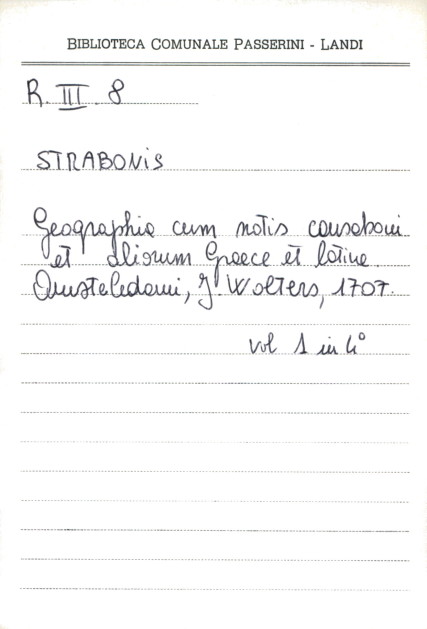 BIBLIOTECA COMUNALE PASSERINI - LANDI
R. III. 8
STRABONIS
Geographia cum notis causaboni
et aliorum Graece et latine.
Amsteledami, J. Wolters, 1707.
vol 1 in 4°